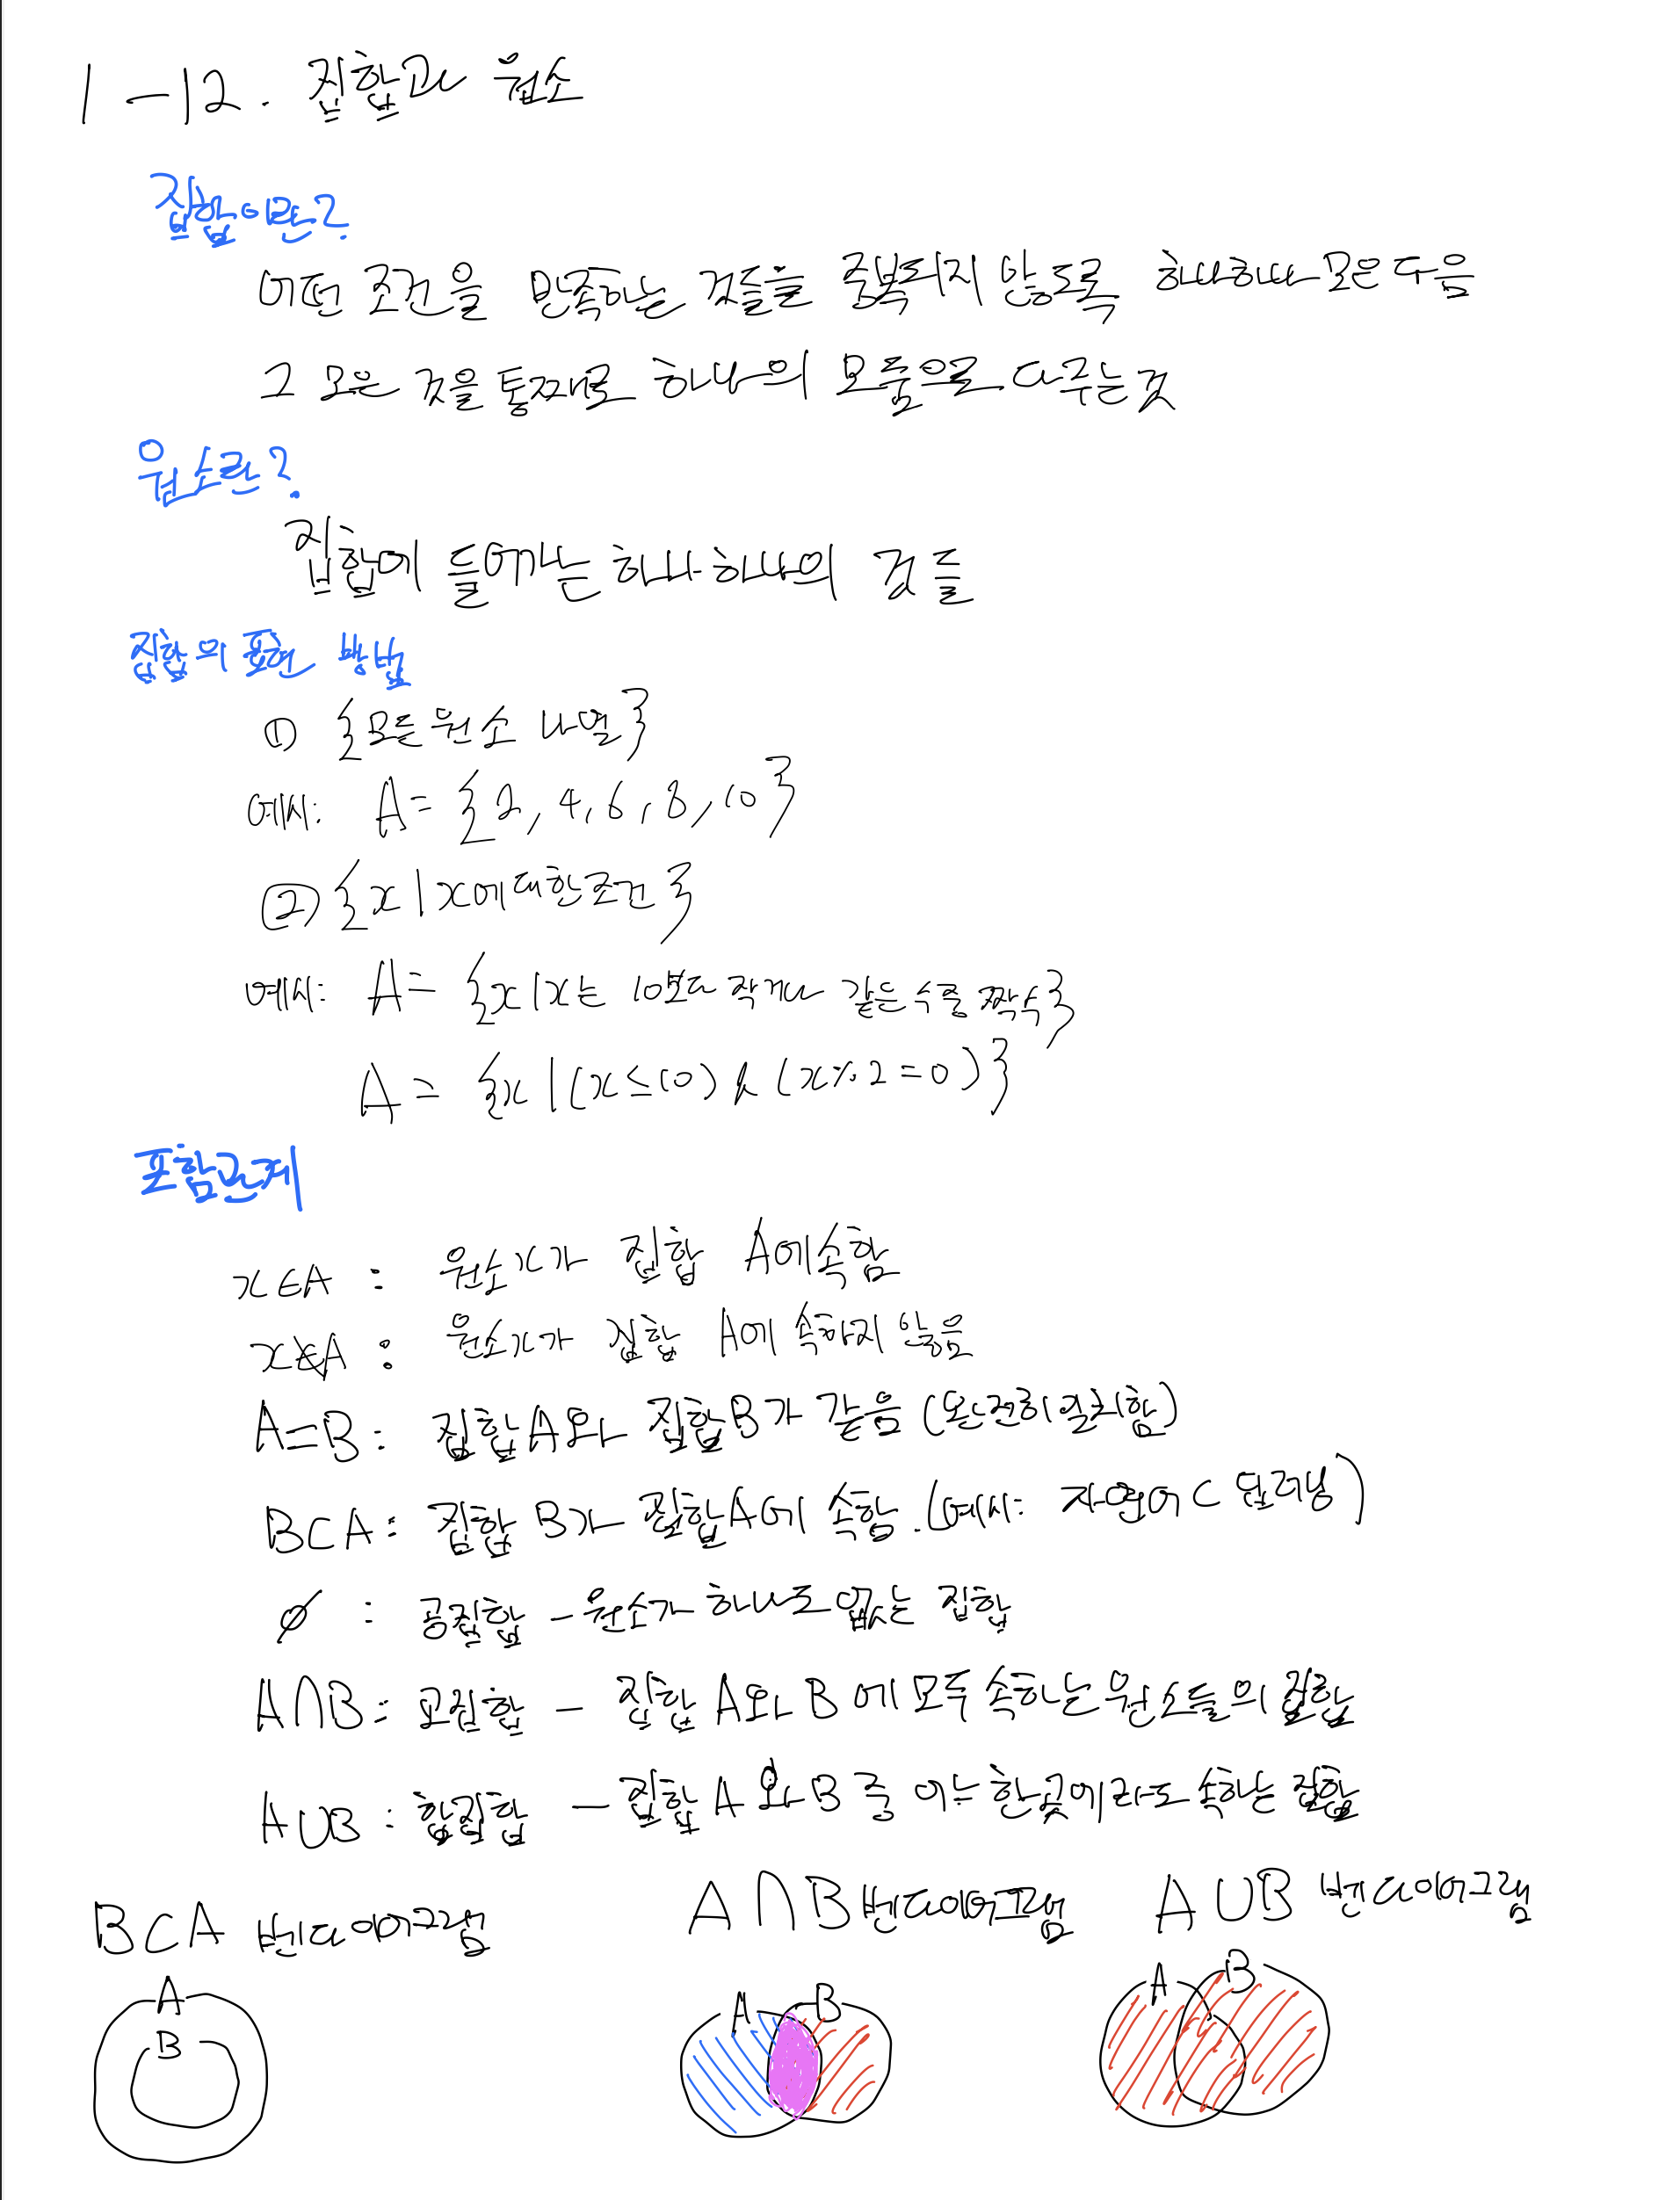 1-12. 집합과 원소
집합이란?
어떤 조건을 만족하는 것들을 중복되지 않도록 하나하나 모은 다음
그 모은 것을 통째로 하나의 모둠으로 다루는 것
원소란?
집합에 들어가는 하나하나의 것들
집합의 표현 방법
① {모든 원소 나열}
예시: A = {2, 4, 6, 8, 10}
② {x | x에 대한 조건}
예시: A = {x | x는 10보다 작거나 같은 수 중 짝수}
A = {x | (x≤10) & (x%2=0)}
포함관계
x∈A : 원소 x가 집합 A에 속함
x∉A : 원소 x가 집합 A에 속하지 않음
A=B : 집합 A와 집합 B가 같음 (완전히 일치함)
B⊂A : 집합 B가 집합 A에 속함. (예시: 자연어 ⊂ 딥러닝)
∅ : 공집합 - 원소가 하나도 없는 집합
A∩B : 교집합 - 집합 A와 B에 모두 속하는 원소들의 집합
A∪B : 합집합 - 집합 A와 B 중 어느 한곳에라도 속하는 집합
B⊂A 벤다이어그램 A∩B 벤다이어그램 A∪B 벤다이어그램
A A B A B
B